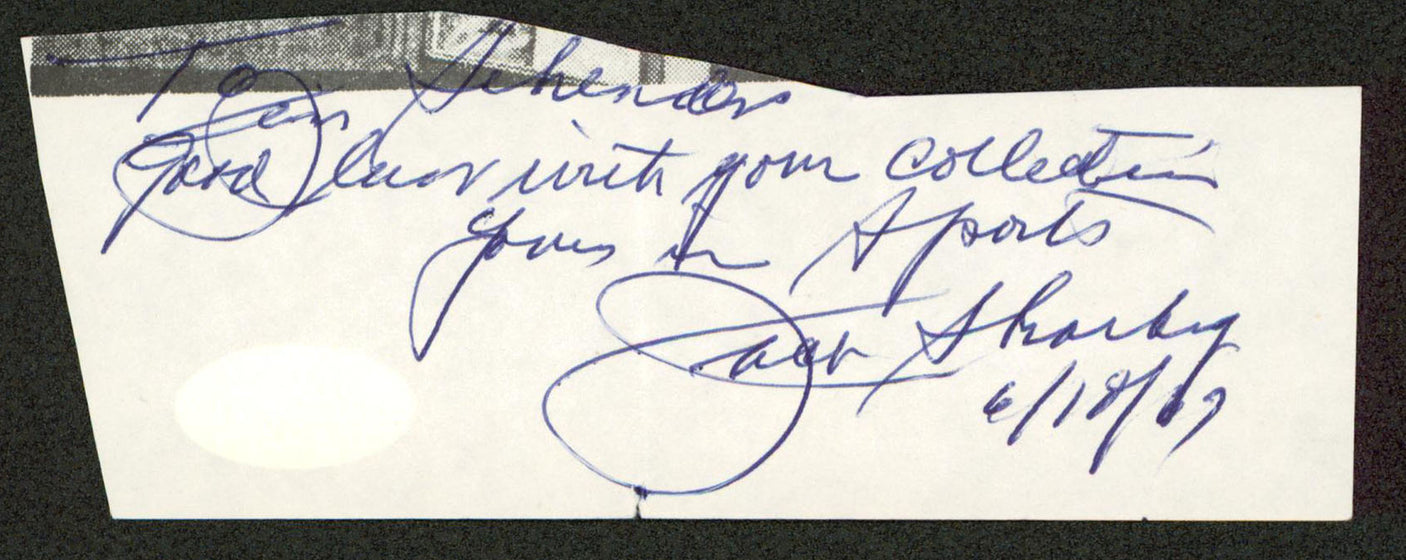 To Jim Schenders
Good luck with your collection
Yours in Sports
Jack Sharkey
6/18/69